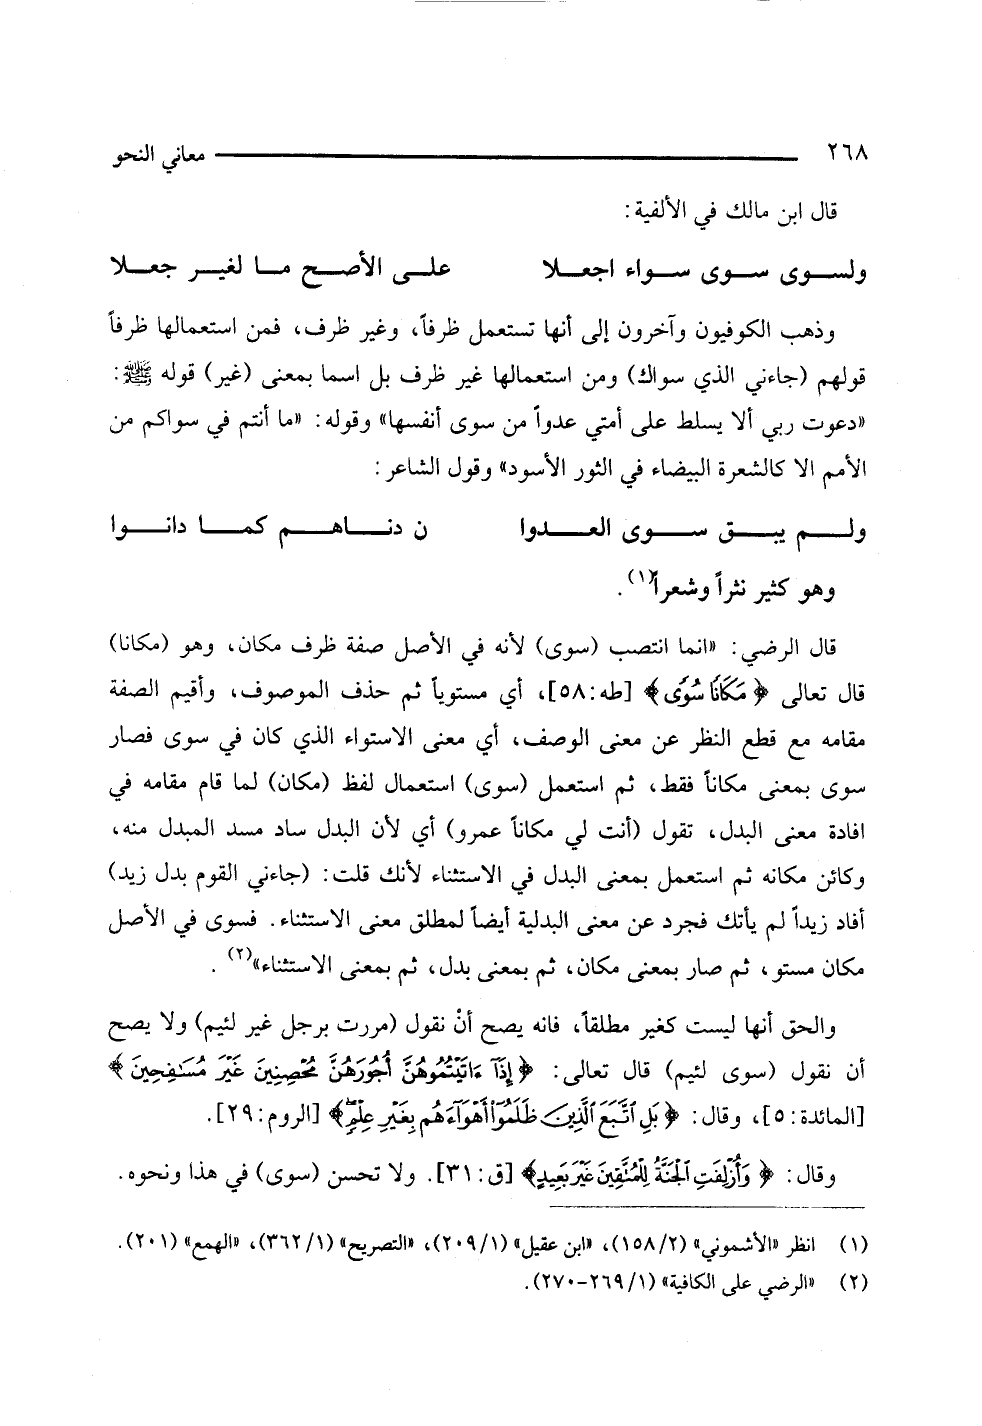 ٢٦٨ معاني النحو
قال ابن مالك في الألفية:
ولسوى سوى سواء اجعلا على الأصح ما لغير جعلا
وذهب الكوفيون وآخرون إلى أنها تستعمل ظرفاً، وغير ظرف، فمن استعمالها ظرفاً
قولهم (جاءني الذي سواك) ومن استعمالها غير ظرف بل اسما بمعنى (غير) قوله ﷺ:
«دعوت ربي ألا يسلط على أمتي عدواً من سوى أنفسها» وقوله: «ما أنتم في سواكم من
الأمم الا كالشعرة البيضاء في الثور الأسود» وقول الشاعر:
ولم يبق سوى العدوا ن دناهم كما دانوا
وهو كثير نثراً وشعراً(١).
قال الرضي: «انما انتصب (سوى) لأنه في الأصل صفة ظرف مكان، وهو (مكانا)
قال تعالى ﴿مَكَانًا سُوًى﴾ [طه:٥٨]، أي مستوياً ثم حذف الموصوف، وأقيم الصفة
مقامه مع قطع النظر عن معنى الوصف، أي معنى الاستواء الذي كان في سوى فصار
سوى بمعنى مكاناً فقط، ثم استعمل (سوى) استعمال لفظ (مكان) لما قام مقامه في
افادة معنى البدل، تقول (أنت لي مكاناً عمرو) أي لأن البدل ساد مسد المبدل منه،
وكائن مكانه ثم استعمل بمعنى البدل في الاستثناء لأنك قلت: (جاءني القوم بدل زيد)
أفاد زيداً لم يأتك فجرد عن معنى البدلية أيضاً لمطلق معنى الاستثناء. فسوى في الأصل
مكان مستو، ثم صار بمعنى مكان، ثم بمعنى بدل، ثم بمعنى الاستثناء»(٢).
والحق أنها ليست كغير مطلقاً، فانه يصح أنْ نقول (مررت برجل غير لئيم) ولا يصح
أن نقول (سوى لئيم) قال تعالى: ﴿إِذَآ ءَاتَيْتُمُوهُنَّ أُجُورَهُنَّ مُحْصِنِينَ غَيْرَ مُسَٰفِحِينَ﴾
[المائدة:٥]، وقال: ﴿بَلِ ٱتَّبَعَ ٱلَّذِينَ ظَلَمُوٓا۟ أَهْوَآءَهُم بِغَيْرِ عِلْمٍۖ﴾ [الروم:٢٩].
وقال: ﴿وَأُزْلِفَتِ ٱلْجَنَّةُ لِلْمُتَّقِينَ غَيْرَ بَعِيدٍ﴾ [ق:٣١]. ولا تحسن (سوى) في هذا ونحوه.
(١) انظر «الأشموني» (١٥٨/٢)، «ابن عقيل» (٢٠٩/١)، «التصريح» (٣٦٢/١)، «الهمع» (٢٠١).
(٢) «الرضي على الكافية» (٢٦٩/١-٢٧٠).